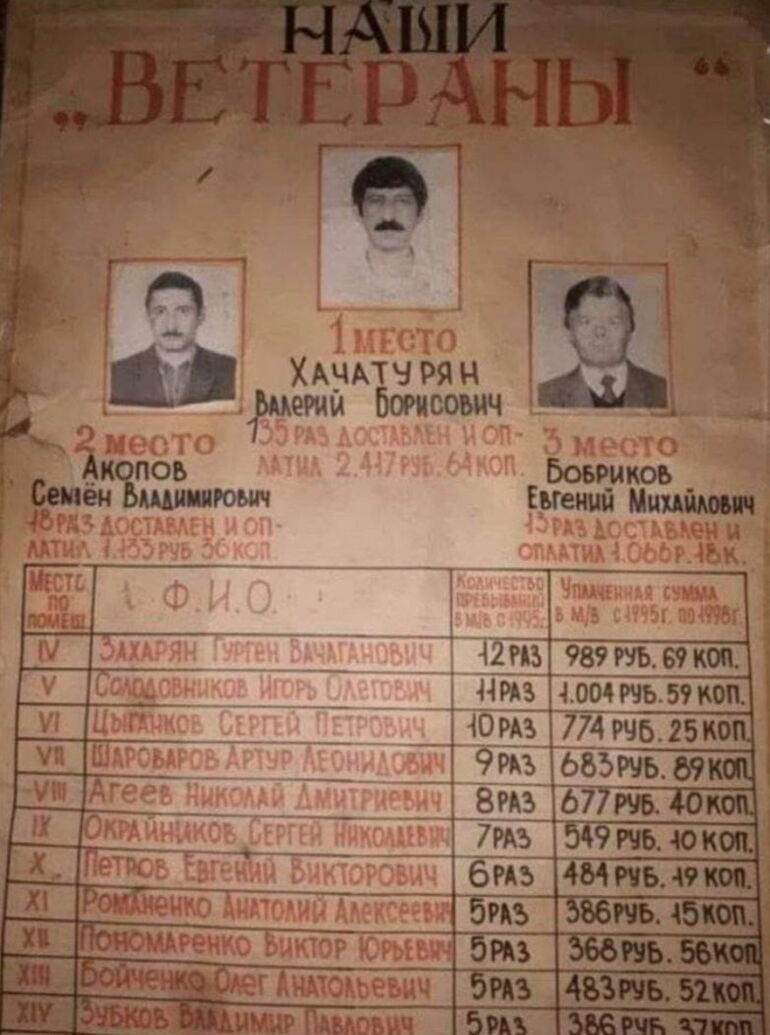 НАШИ
„ВЕТЕРАНЫ“
1 МЕСТО
ХАЧАТУРЯН
ВАЛЕРИЙ БОРИСОВИЧ
135 РАЗ ДОСТАВЛЕН И ОП-
ЛАТИЛ 2.417 РУБ. 64 КОП.
2 МЕСТО
АКОПОВ
СЕМЁН ВЛАДИМИРОВИЧ
18 РАЗ ДОСТАВЛЕН И ОП-
ЛАТИЛ 1.133 РУБ 36 КОП.
3 МЕСТО
БОБРИКОВ
ЕВГЕНИЙ МИХАЙЛОВИЧ
13 РАЗ ДОСТАВЛЕН И
ОПЛАТИЛ 1.066 Р. 18 К.
МЕСТО
ПО
ПОМЕЩ.
Ф.И.О.
КОЛИЧЕСТВО
ПРЕБЫВАНИЙ
В М/В С 1995г.
УПЛАЧЕННАЯ СУММА
В М/В С 1995г. ПО 1998г.
IV ЗАХАРЯН ГУРГЕН ВАЧАГАНОВИЧ 12 РАЗ 989 РУБ. 69 КОП.
V СОЛОДОВНИКОВ ИГОРЬ ОЛЕГОВИЧ 11 РАЗ 1.004 РУБ. 59 КОП.
VI ЦЫГАНКОВ СЕРГЕЙ ПЕТРОВИЧ 10 РАЗ 774 РУБ. 25 КОП.
VII ШАРОВАРОВ АРТУР ЛЕОНИДОВИЧ 9 РАЗ 683 РУБ. 89 КОП.
VIII АГЕЕВ НИКОЛАЙ ДМИТРИЕВИЧ 8 РАЗ 677 РУБ. 40 КОП.
IX ОКРАЙНИКОВ СЕРГЕЙ НИКОЛАЕВИЧ 7 РАЗ 549 РУБ. 10 КОП.
X ПЕТРОВ ЕВГЕНИЙ ВИКТОРОВИЧ 6 РАЗ 484 РУБ. 19 КОП.
XI РОМАНЕНКО АНАТОЛИЙ АЛЕКСЕЕВИЧ 5 РАЗ 386 РУБ. 15 КОП.
XII ПОНОМАРЕНКО ВИКТОР ЮРЬЕВИЧ 5 РАЗ 368 РУБ. 56 КОП
XIII БОЙЧЕНКО ОЛЕГ АНАТОЛЬЕВИЧ 5 РАЗ 483 РУБ. 52 КОП.
XIV ЗУБКОВ ВЛАДИМИР ПАВЛОВИЧ 5 РАЗ 386 РУБ. 37 КОП.